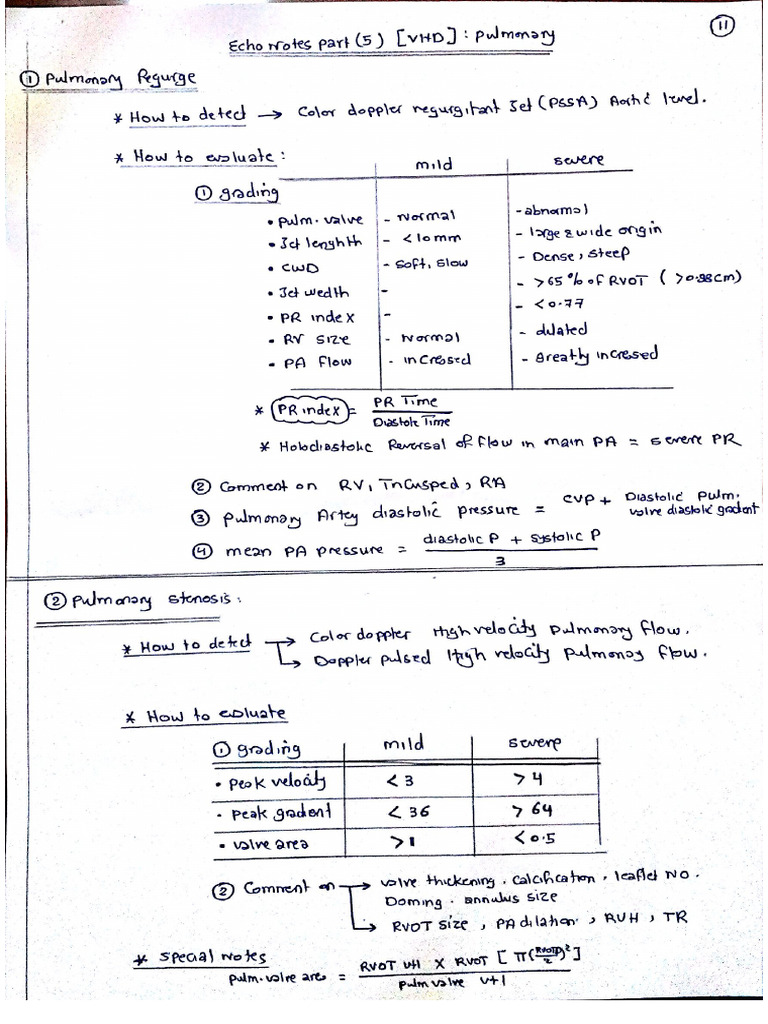 11
Echo Notes part (5) [VHD] : pulmonary
① Pulmonary Regurge
* How to detect → Color doppler regurgitant Jet (PSSA) Aortic level.
* How to evaluate :
mild severe
① grading
• pulm. valve - Normal - abnormal
• Jet lenghth - < 10 mm - large & wide origin
• CWD - Soft, slow - Dense, steep
• Jet wedth - - > 65 % of RVOT ( > 0.98 cm)
• PR index - - < 0.77
• RV size - Normal - dilated
• PA flow - incressed - Greatly incressed
* PR index = PR Time / Diastole Time
* Holodiastolic Reversal of flow in main PA = severe PR
② Comment on RV, Tricusped, RA
③ pulmonary Artey diastolic pressure = CVP + Diastolic pulm. valve diastolic gradent
④ mean PA pressure = diastolic P + systolic P / 3
② Pulmonary stenosis :
* How to detect → Color doppler High velocity pulmonary flow.
↳ Doppler pulsed High velocity pulmonary flow.
* How to evaluate
① grading mild severe
• peak velocity < 3 > 4
• peak gradent < 36 > 64
• valve area > 1 < 0.5
② Comment on → valve thickening . calcification . leaflet No .
Doming . annulus size
↳ RVOT size , PA dilation , RVH , TR
* special notes
pulm. valve area = RVOT VTI X RVOT [ π(RVOTD/2)² ] / pulm valve VTI